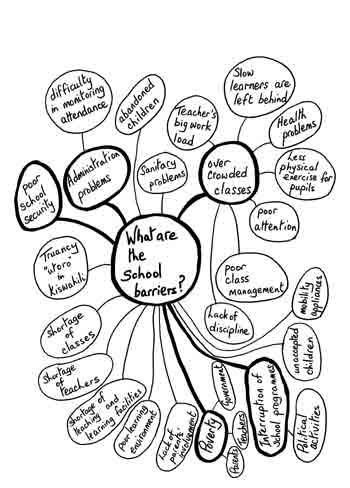 difficulty
in monitoring
attendance
abandoned
children
Slow
learners are
left behind
Teacher's
big work
load
Health
problems
Administration
problems
Sanitary
problems
over
Crowded
classes
Less
physical
exercise for
pupils
poor
school
security
poor
attention
What are
the
School
barriers?
Truancy
"utoro" in
kiswahili
poor
class
management
mobility
appliances
Shortage
of
classes
Lack of
discipline
unaccepted
children
Shortage
of
teachers
Shortage of
teaching and
learning facilities
Poor learning
environment
Lack of
parents'
involvement
Poverty
Government
Teachers
Parents
Interruption of
School programmes
Political
activities